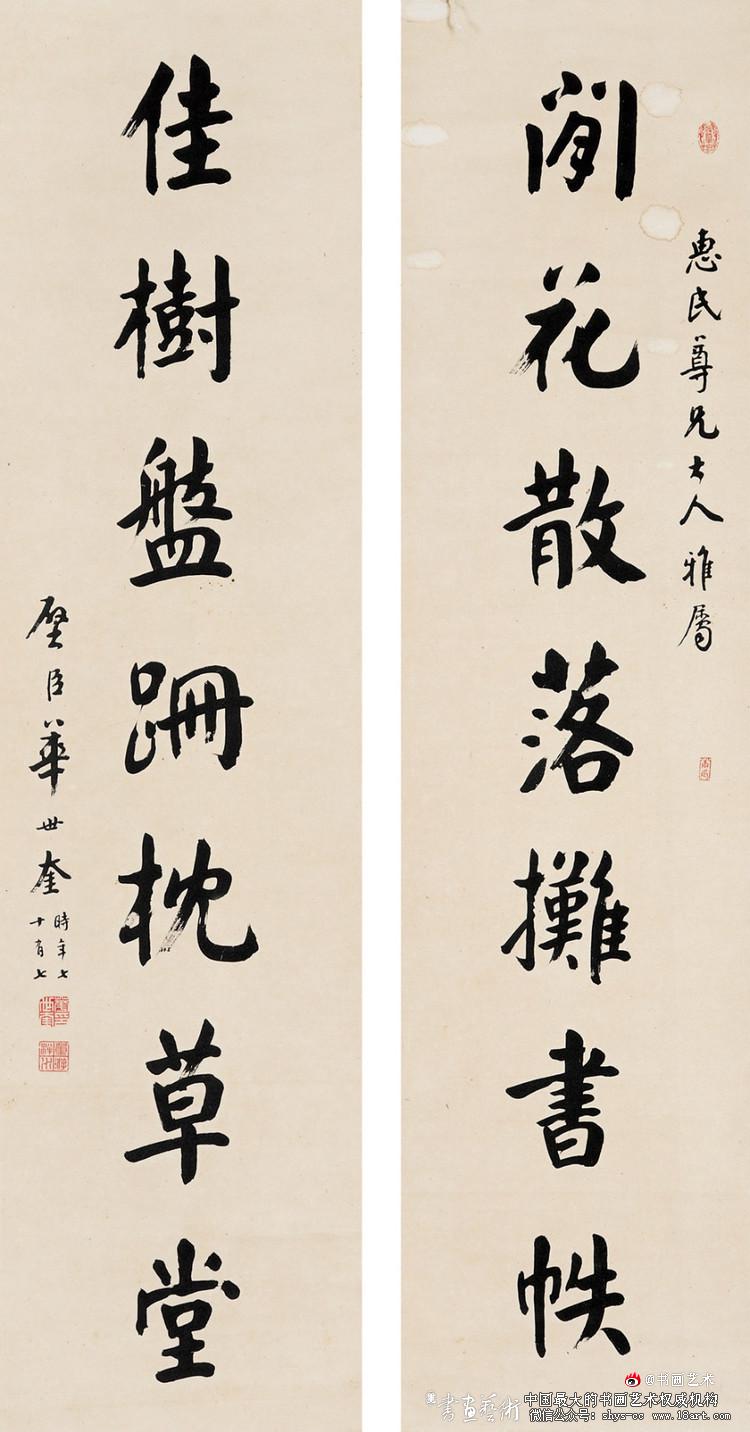 惠民尊兄大人雅屬
閒花散落攤書帙
佳樹盤跚枕草堂
璧臣華世奎
時年七
十有七
@书画艺术
書畫藝術
中国最大的书画艺术权威机构
微信公众号：shys-cc www.18art.com